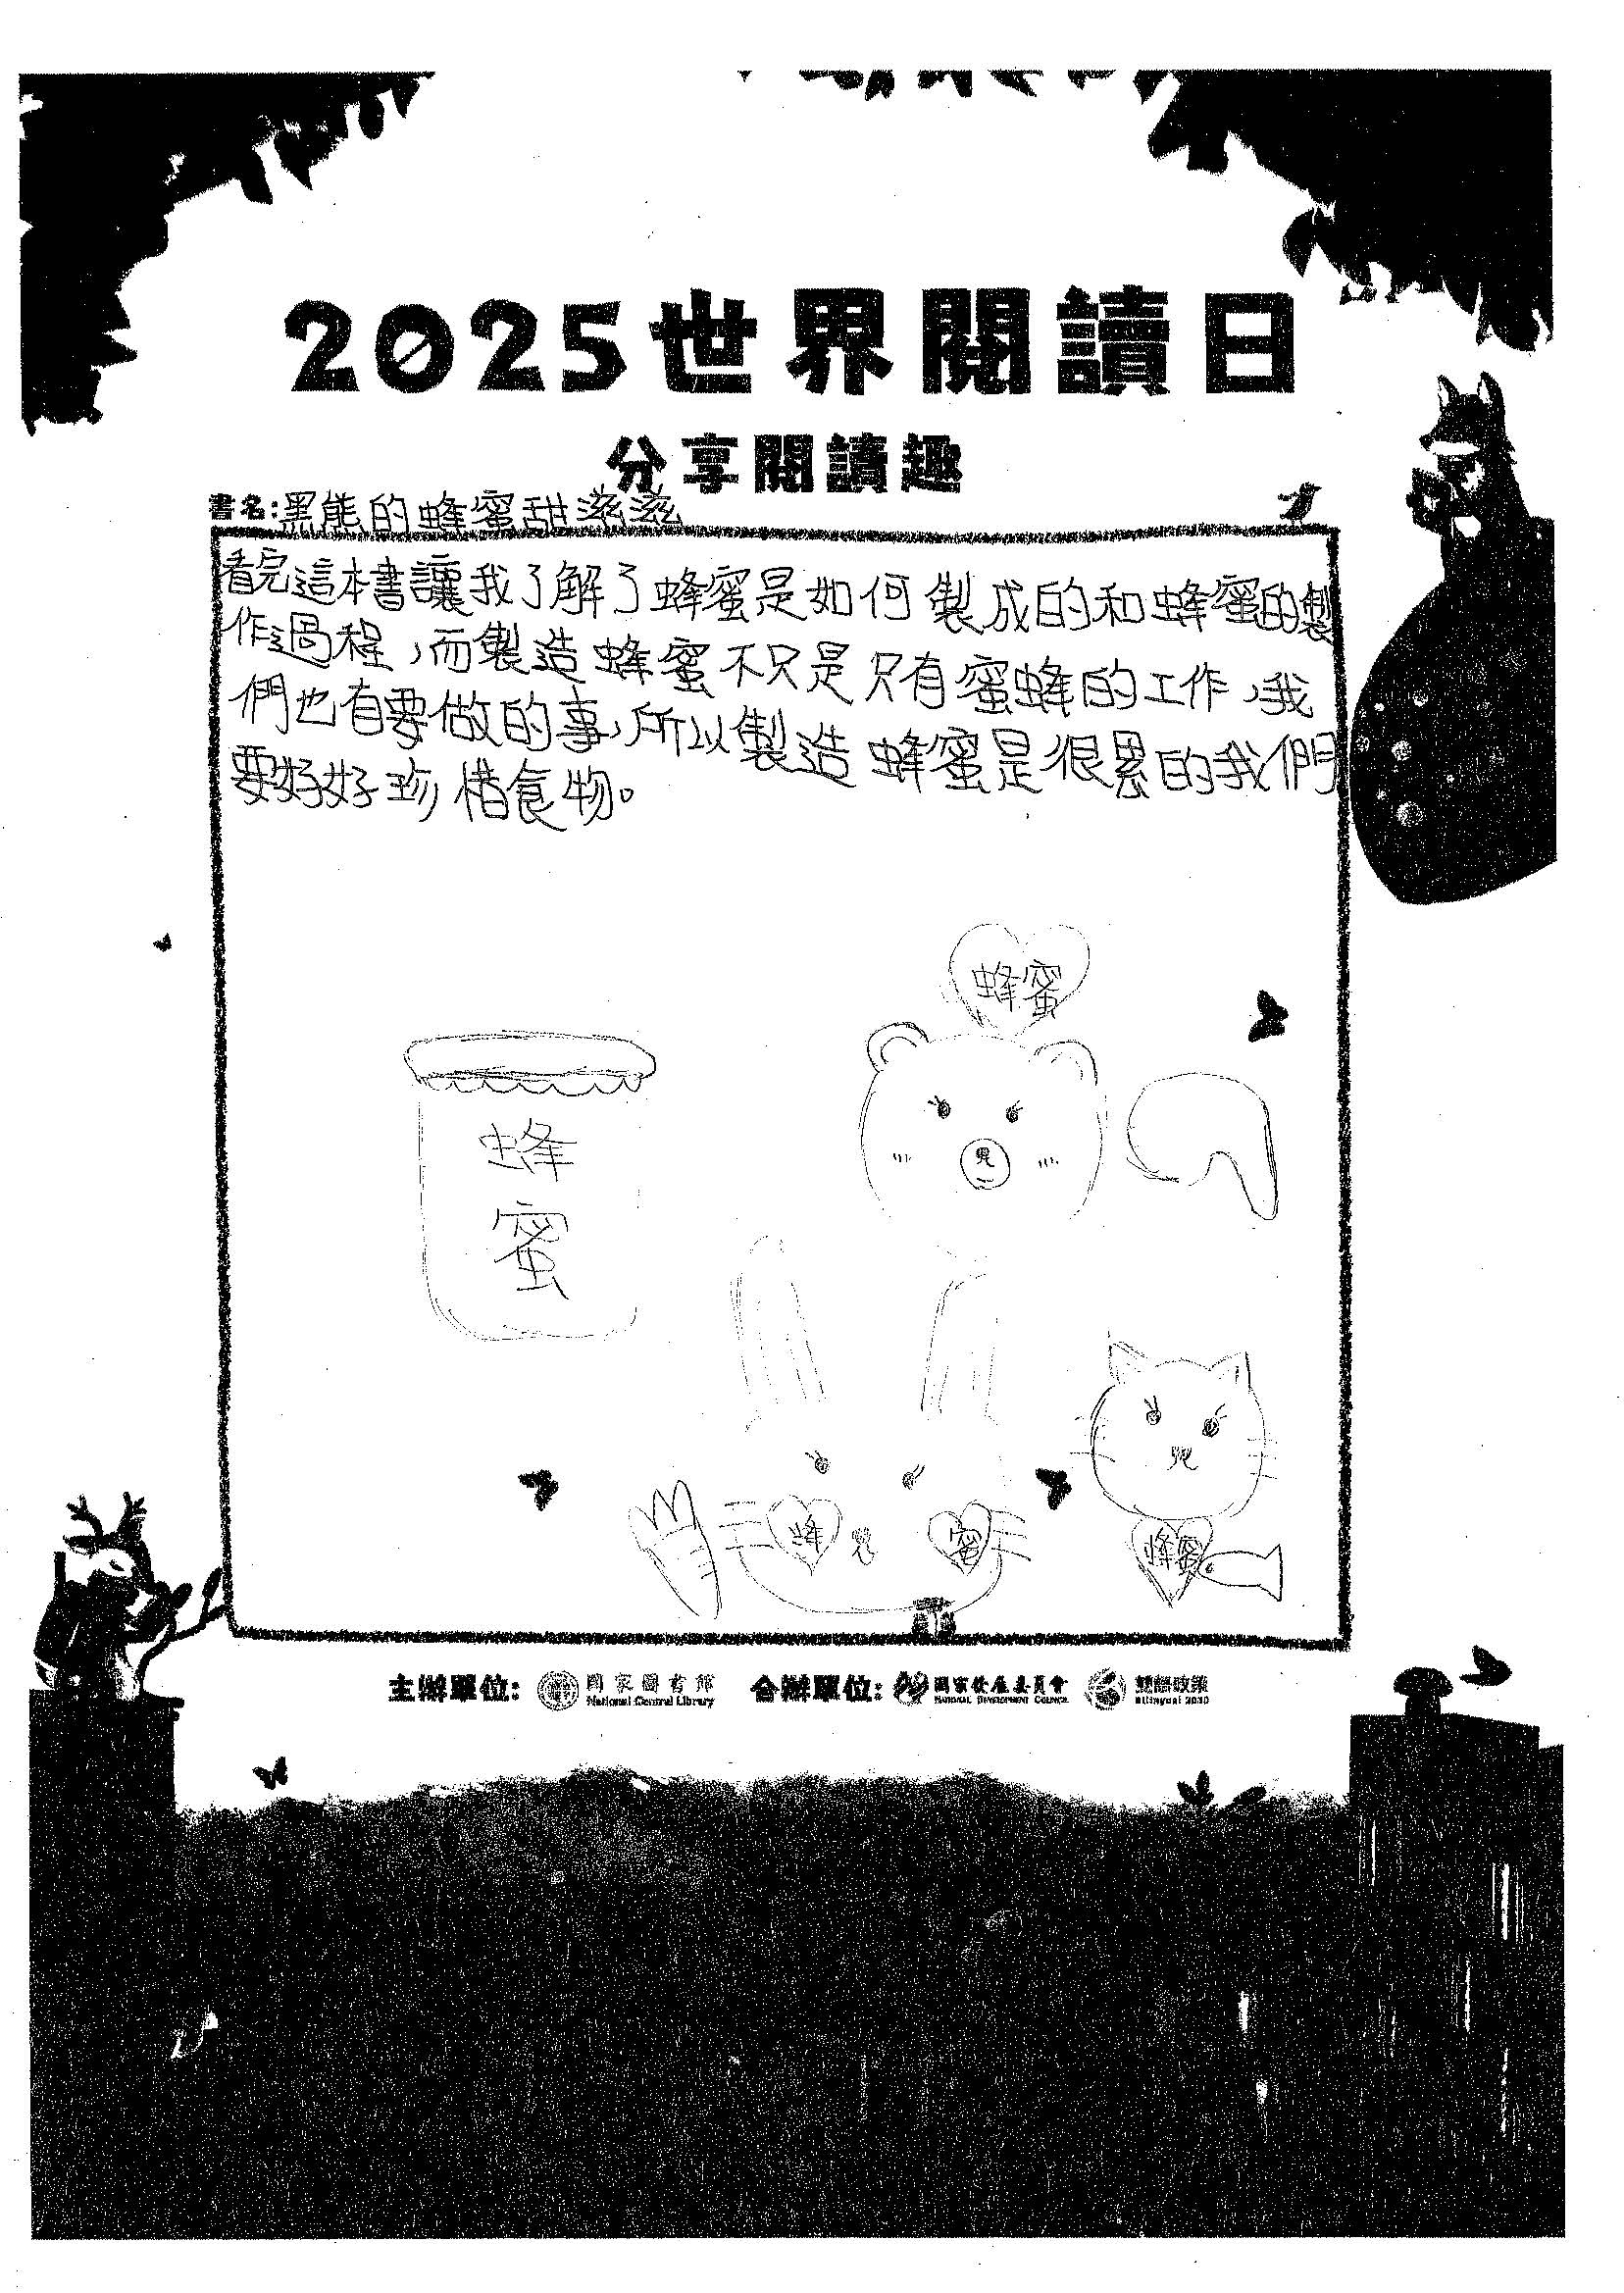 2025世界閱讀日
分享閱讀趣
書名:黑熊的蜂蜜甜滋滋
看完這本書讓我了解了蜂蜜是如何製成的和蜂蜜的製
作過程,而製造蜂蜜不只是只有蜜蜂的工作,我
們也有要做的事,所以製造蜂蜜是很累的我們
要好好珍惜食物。
蜂蜜
蜂
蜜
蜂
蜜
蜂蜜
主辦單位: 國家圖書館 合辦單位: 國家發展委員會 雙語政策
National Central Library NATIONAL DEVELOPMENT COUNCIL Bilingual 2030